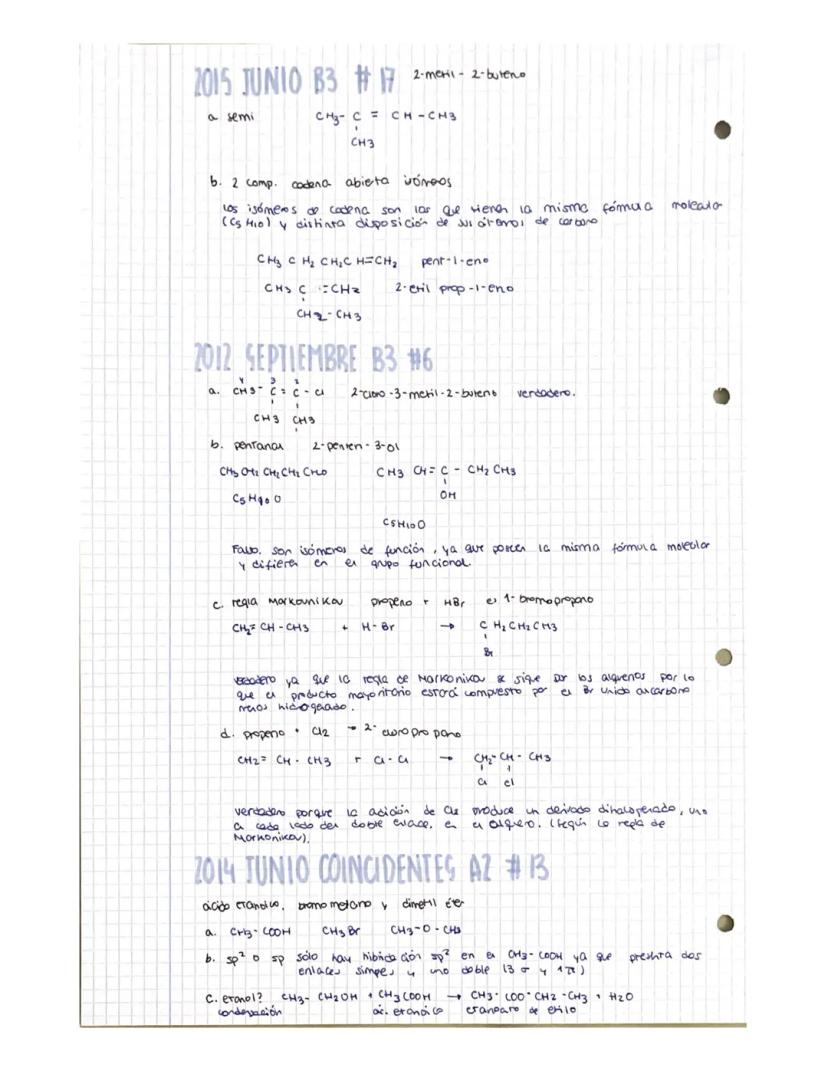 2015 JUNIO B3 # 17 2-metil - 2-buteno
a semi CH3- C = CH - CH3
CH3
b. 2 comp. cadena abierta isómeros
los isómeros de cadena son las que tienen la misma fómula molecular
(C5 H10) y distinta disposición de sus átomos de carbono
CH3 C H2 CH2C H=CH2 pent-1-eno
CH3 C =CH2 2-etil prop-1-eno
CH2-CH3
2012 SEPTIEMBRE B3 #6
a. CH3- C = C - Cl 2-cloro-3-metil-2-buteno verdadero.
4 3 2
CH3 CH3
1
b. pentanal 2-penten-3-ol
CH3 CH2 CH2 CH2 CHO CH3 CH= C - CH2 CH3
OH
C5 H10 O
C5H10O
Falso. son isómeros de función, ya que poseen la misma fórmula molecular
y difieren en el grupo funcional.
c. regla Markovnikov propeno + HBr es 1-bromopropano
CH2= CH - CH3 + H-Br → C H2 CH2 CH3
Br
ya que la regla de Markonikov se sigue por los alquenos por lo
que el producto mayoritario estará compuesto por el Br unido al carbono
menos hidrogenado.
d. propeno + Cl2 → 2- cloropropano
CH2= CH - CH3 + Cl-Cl → CH2-CH - CH3
Cl Cl
Verdadero porque la adición de Cl2 produce un derivado dihalogenado, uno
a cada lado del doble enlace, en el alqueno. (según la regla de
Markonikov).
2014 JUNIO COINCIDENTES A2 # 13
ácido etanoico, bromometano y dimetil éter
a. CH3- COOH CH3 Br CH3-O-CH3
b. sp² o sp sólo hay hibridación sp² en el CH3-COOH ya que presenta dos
enlaces simples y uno doble (3 σ y 1π)
C. etanol? CH3- CH2OH + CH3COOH → CH3- COO-CH2-CH3 + H2O
condensación ác. etanoico etanoato de etilo